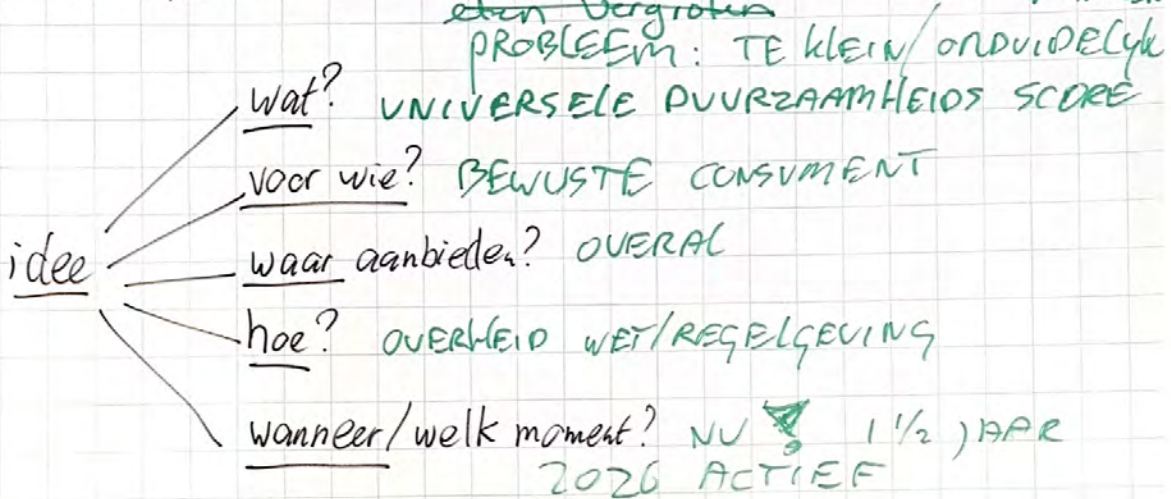 eten vergroten
PROBLEEM: TE KLEIN/ONDUIDELYK
wat? UNIVERSELE DUURZAAMHEIDS SCORE
voor wie? BEWUSTE CONSUMENT
idee waar aanbieden? OVERAL
hoe? OVERHEID WET/REGELGEVING
wanneer/welk moment? NU ! 1 1/2 JAAR
2026 ACTIEF